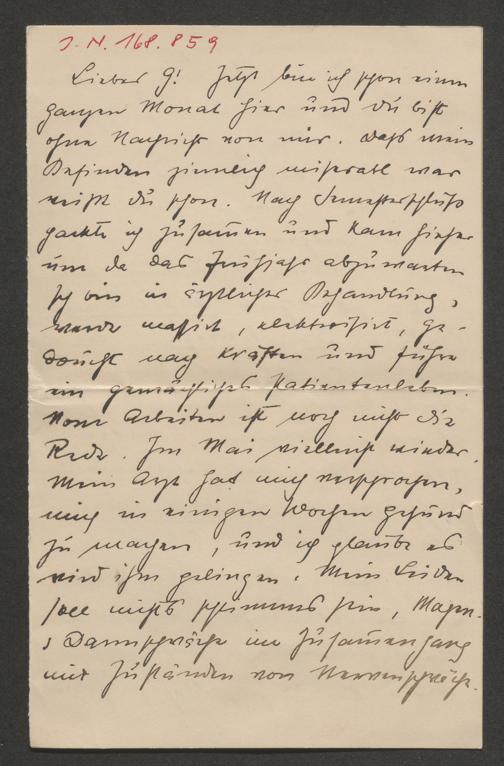 I. N. 168.859
Lieber G! Jetzt bin ich schon einen
ganzen Monat hier und du bist
ohne Nachricht von mir. Daß mein
Befinden ziemlich miserabl war
weißt du schon. Nach Semesterschluß
packte ich zusamen und kam hieher
um da das Frühjahr abzuwarten
Ich bin in ärztlicher Behandlung,
werde massirt, elektrisirt, ge-
doucht nach Kräften und führe
ein gemächliches Patientenleben.
Vom Arbeiten ist noch nicht die
Rede. Im Mai vielleicht wieder.
Mein Arzt hat mich versprochen,
mich in einigen Wochen gesund
zu machen, und ich glaube es
wird ihm gelingen. Mein Leiden
soll nichts schlimmes sein, Magen-
s Darmschwäche im Zusamenhang
mit Zuständen von Nervenschwäche.